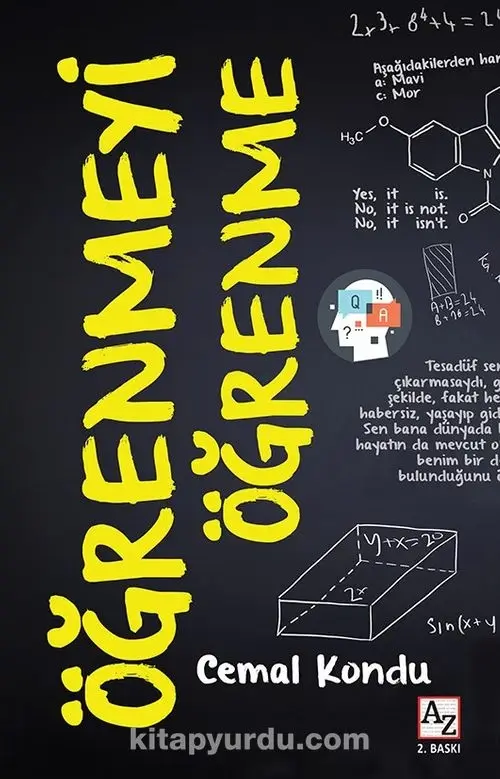 ÖĞRENMEYİ
ÖĞRENME
2x3x 8⁴+4=2
Aşağıdakilerden har
a: Mavi
c: Mor
H₃C
O
N
O
Yes, it is.
No, it is not.
No, it isn't.
A+B=24
Q
A
!!
?
Tesadüf ser
çıkarmasaydı, g
şekilde, fakat he
habersiz, yaşayıp gid
Sen bana dünyada
hayatın da mevcut o
benim bir d
bulunduğunu
y+x=20
2x
Sin(x+y
Cemal Kondu
AZ
2. BASKI
kitapyurdu.com